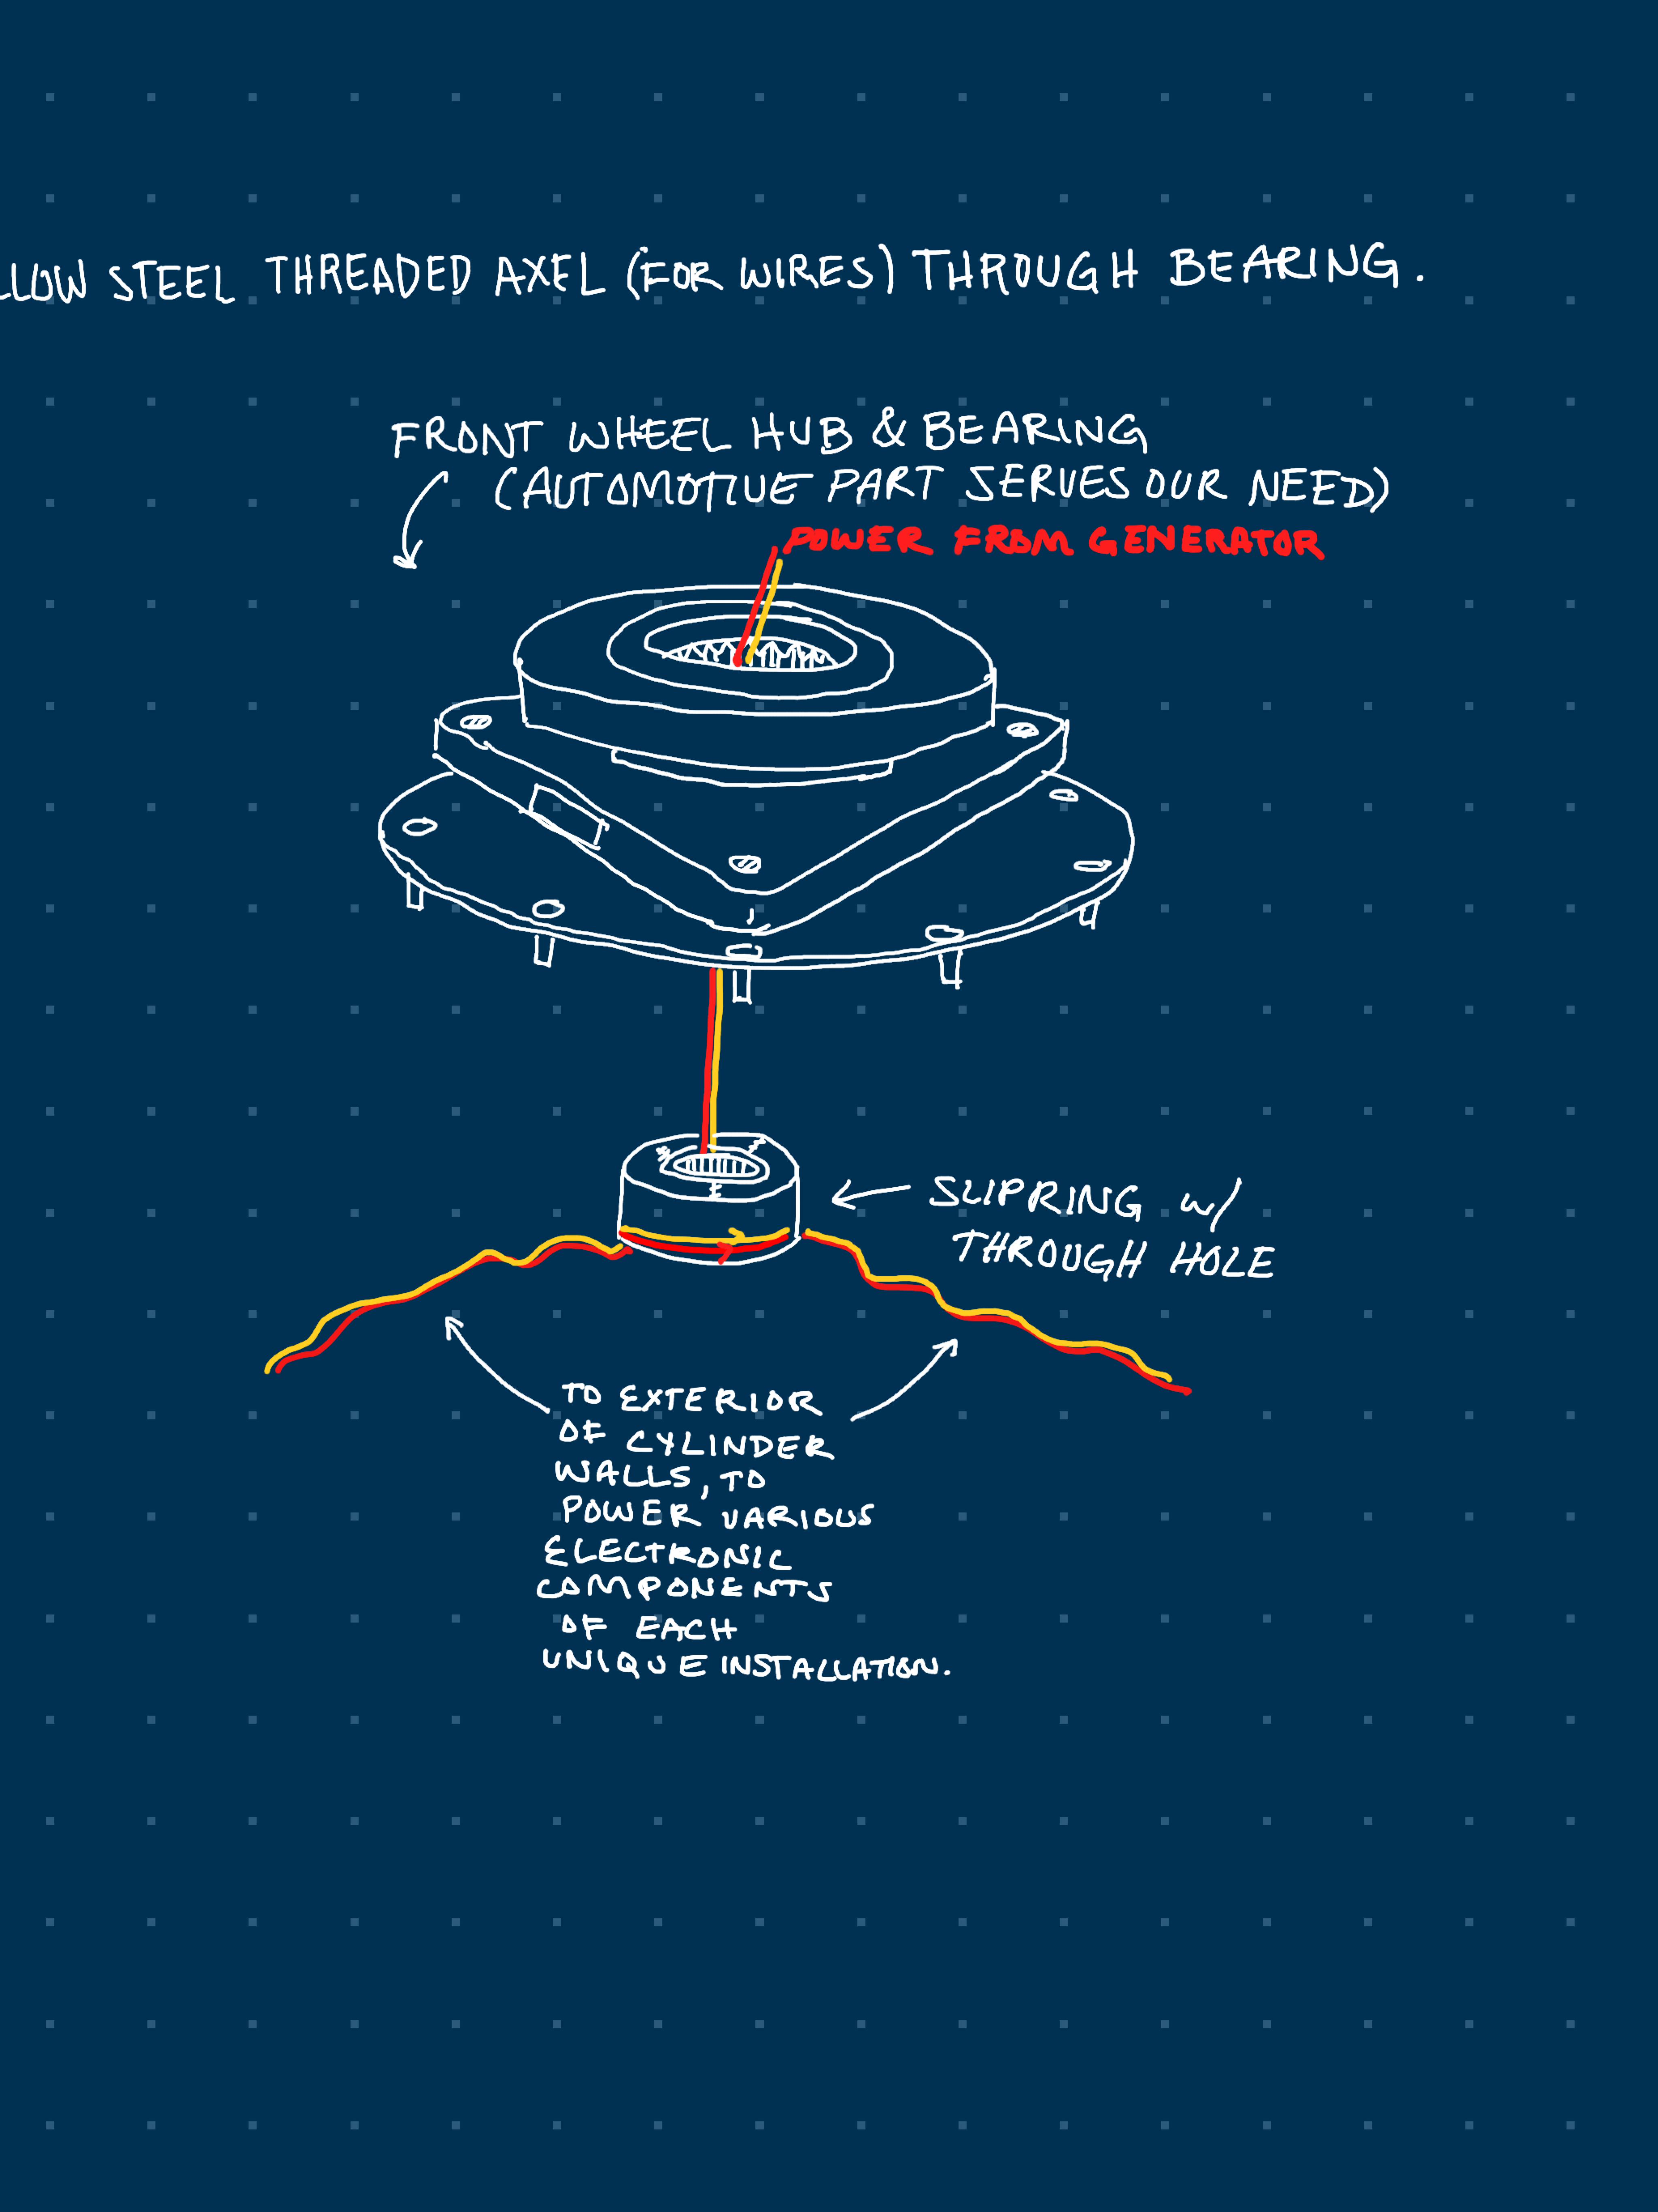 LLOW STEEL THREADED AXEL (FOR WIRES) THROUGH BEARING.
FRONT WHEEL HUB & BEARING
(AUTOMOTIVE PART SERVES OUR NEED)
POWER FROM GENERATOR
SLIPRING w/
THROUGH HOLE
TO EXTERIOR
OF CYLINDER
WALLS, TO
POWER VARIOUS
ELECTRONIC
COMPONENTS
OF EACH
UNIQUE INSTALLATION.